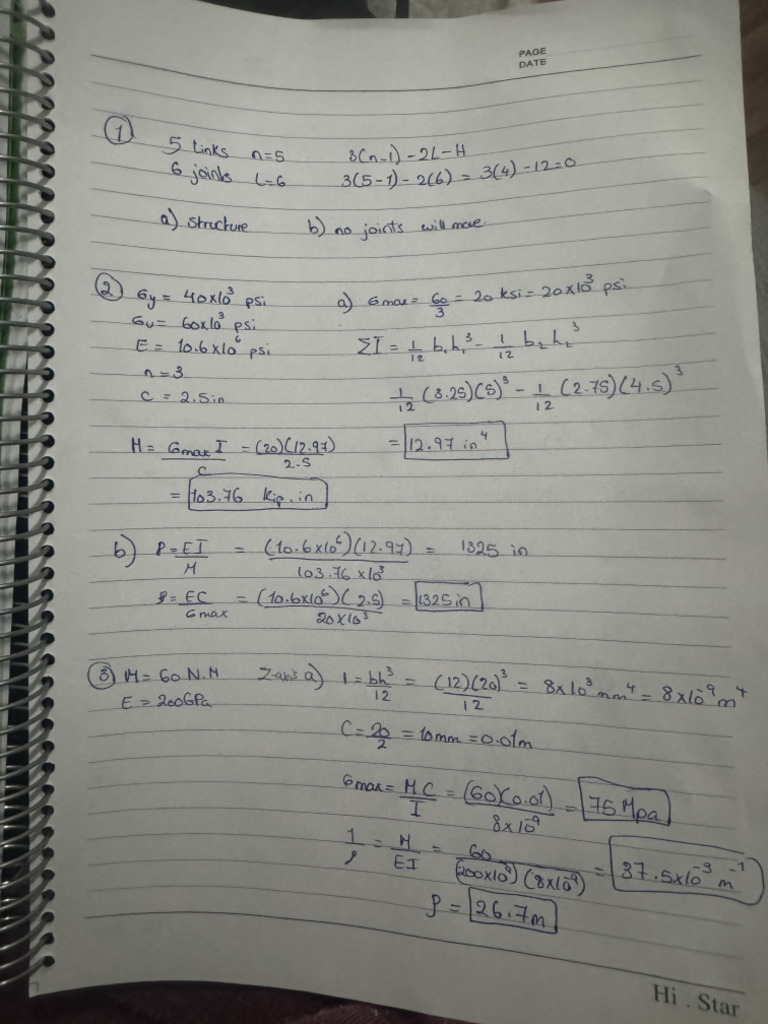 PAGE
DATE
① 5 Links n=5 3(n-1)-2L-H
6 joints L=6 3(5-1)-2(6) = 3(4)-12=0
a) structure b) no joints will move
② σy = 40x10³ psi a) σmax = 60/3 = 20 ksi = 20x10³ psi
σu = 60x10³ psi
E = 10.6x10⁶ psi ΣI = 1/12 b₁h₁³ - 1/12 b₂h₂³
n=3
c = 2.5in 1/12 (3.25)(5)³ - 1/12 (2.75)(4.5)³
M = σmax I/c = (20)(12.97)/2.5 = 12.97 in⁴
= 103.76 kip.in
b) ρ = EI/M = (10.6x10⁶)(12.97)/103.76x10³ = 1325 in
ρ = EC/σmax = (10.6x10⁶)(2.5)/20x10³ = 1325in
③ M = 60 N.M Z-axis a) I = bh³/12 = (12)(20)³/12 = 8x10³ mm⁴ = 8x10⁻⁹ m⁴
E = 200GPa
C = 20/2 = 10mm = 0.01m
σmax = MC/I = (60)(0.01)/8x10⁻⁹ = 75 Mpa
1/ρ = M/EI = 60/(200x10⁹)(8x10⁻⁹) = 37.5x10⁻³ m⁻¹
ρ = 26.7m
Hi . Star